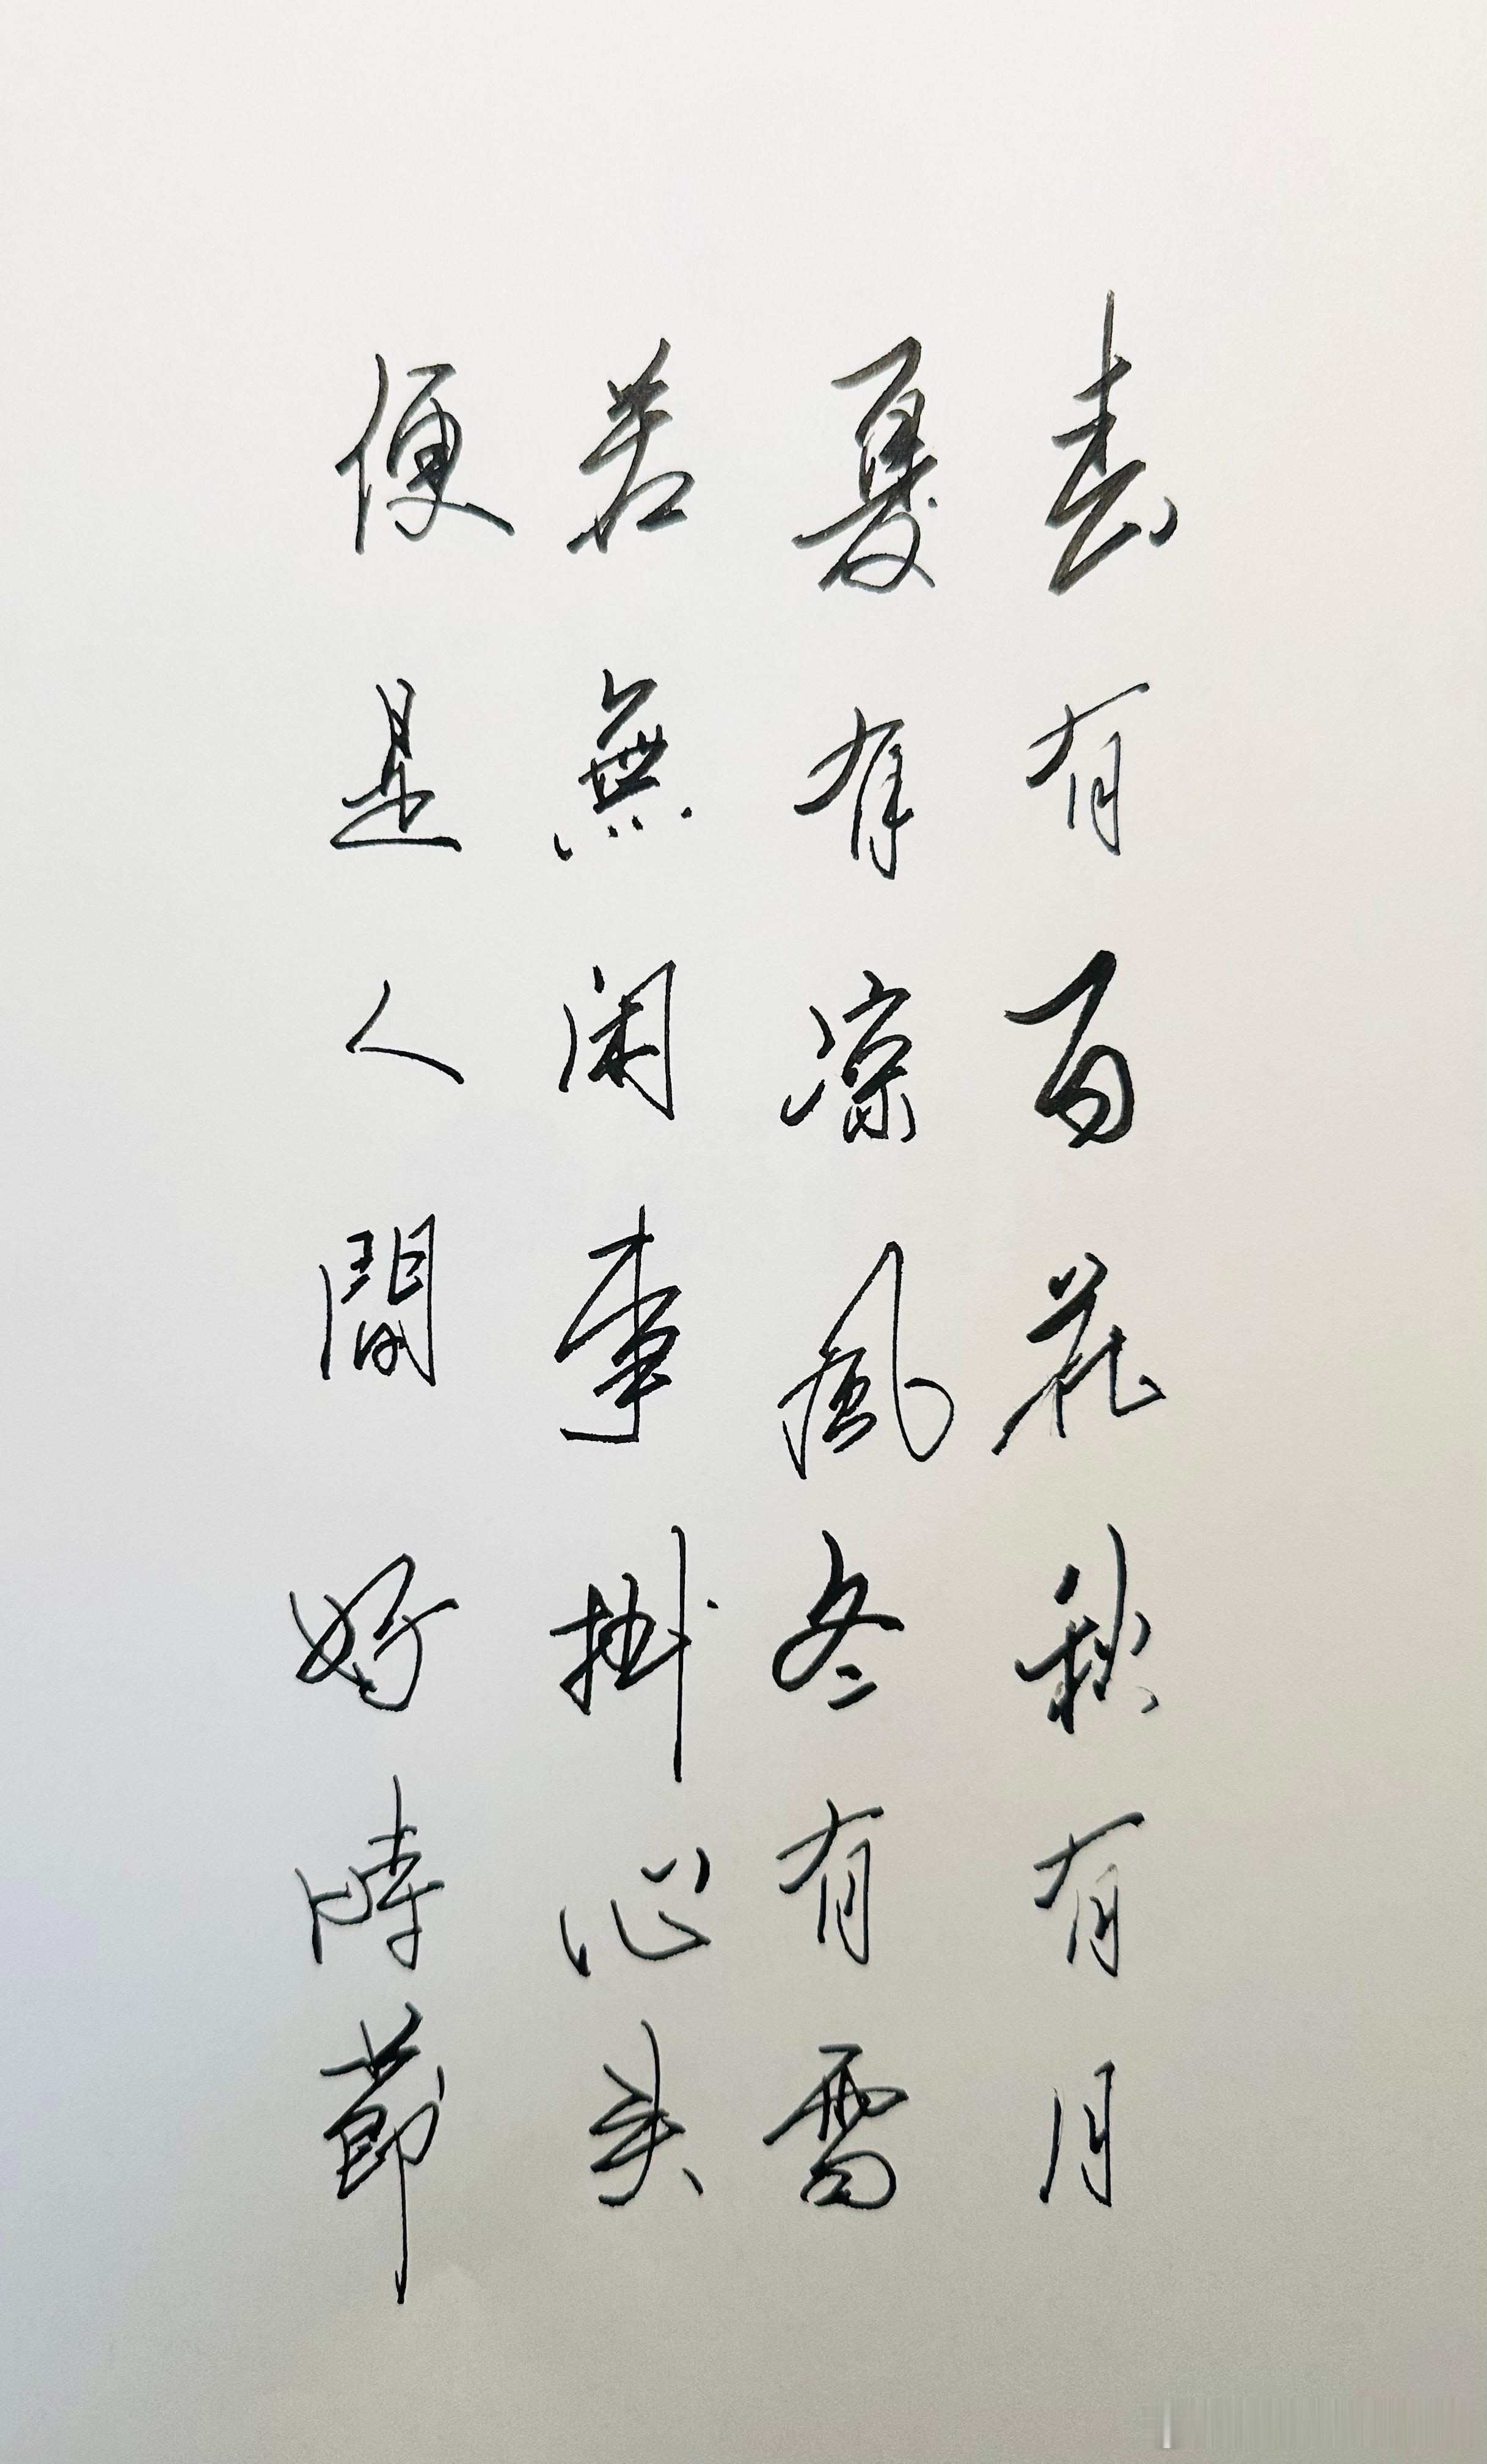 春有百花秋有月
夏有凉風冬有雪
若無闲事掛心头
便是人間好時節